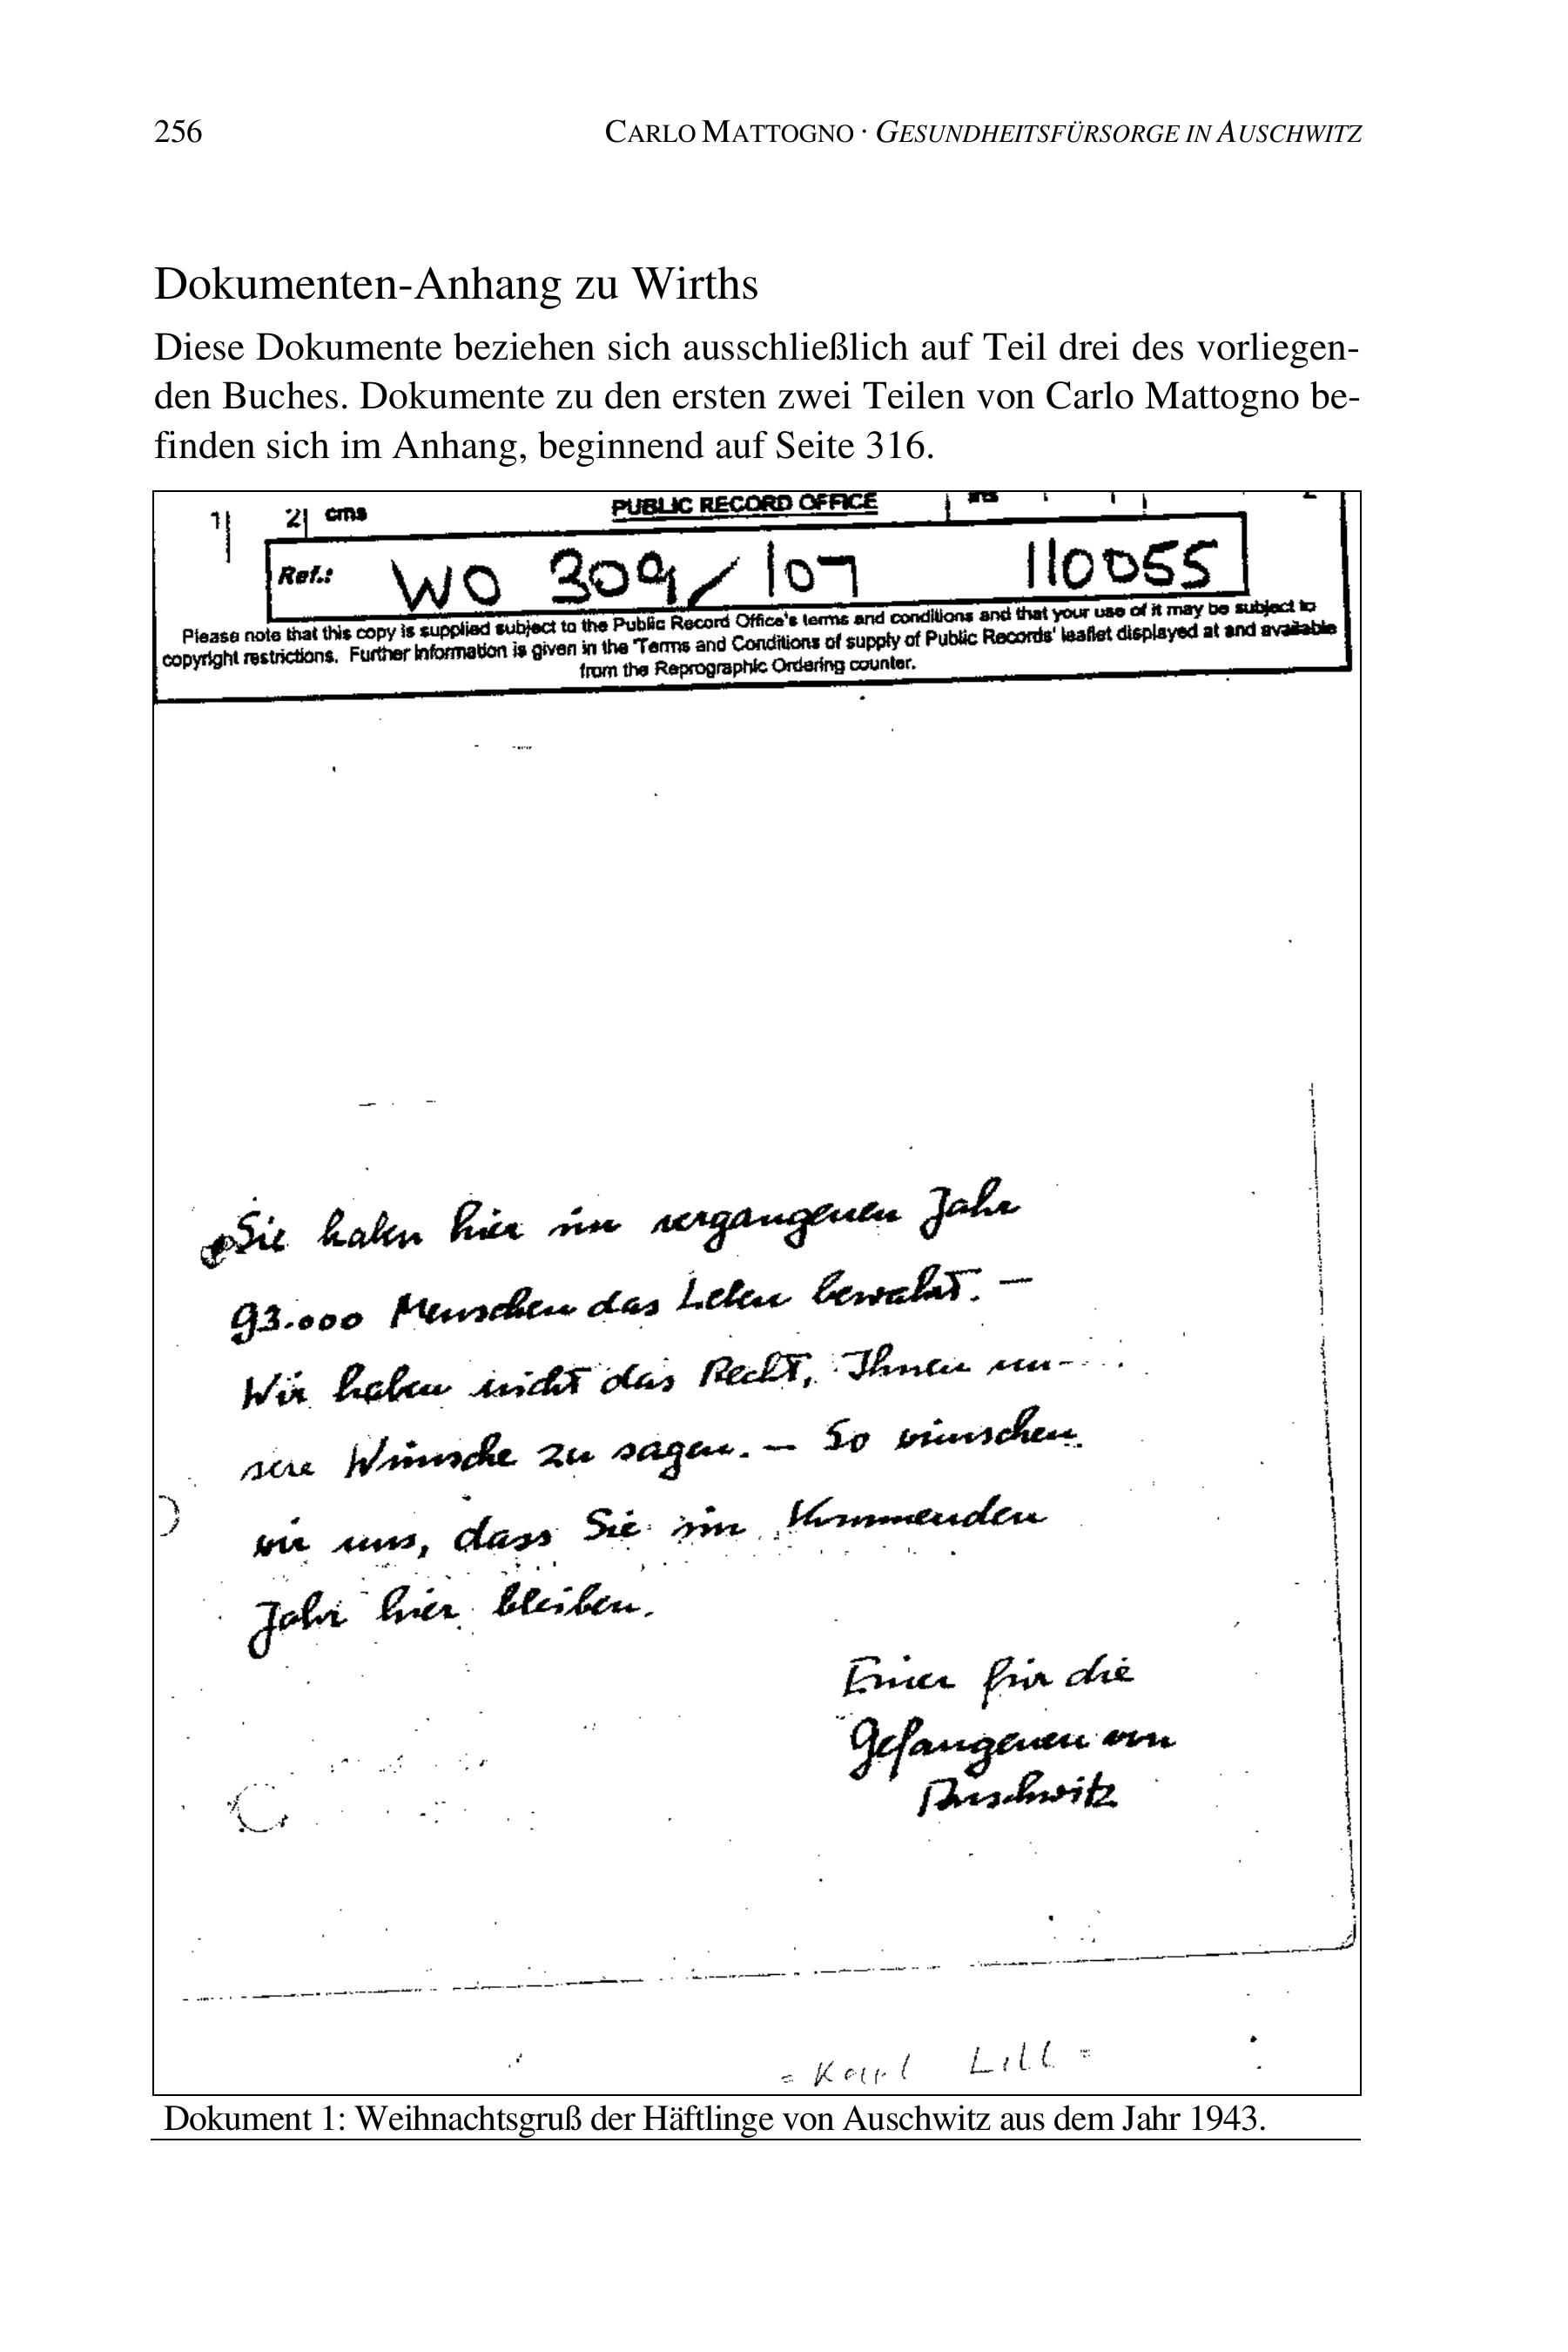 256
CARLO MATTOGNO · GESUNDHEITSFÜRSORGE IN AUSCHWITZ
Dokumenten-Anhang zu Wirths
Diese Dokumente beziehen sich ausschließlich auf Teil drei des vorliegen-
den Buches. Dokumente zu den ersten zwei Teilen von Carlo Mattogno be-
finden sich im Anhang, beginnend auf Seite 316.
1 2 cms PUBLIC RECORD OFFICE ins
Ref.: WO 309/107 110055
Please note that this copy is supplied subject to the Public Record Office's terms and conditions and that your use of it may be subject to
copyright restrictions. Further information is given in the 'Terms and Conditions of supply of Public Records' leaflet displayed at and available
from the Reprographic Ordering counter.
Sie haben hier im vergangenen Jahr
93.000 Menschen das Leben bewahrt. —
Wir haben nicht das Recht, Ihnen un-
sere Wünsche zu sagen. — So wünschen
wir uns, dass Sie im kommenden
Jahr hier bleiben.
Einer für die
Gefangenen von
Auschwitz
= Karl Lill =
Dokument 1: Weihnachtsgruß der Häftlinge von Auschwitz aus dem Jahr 1943.